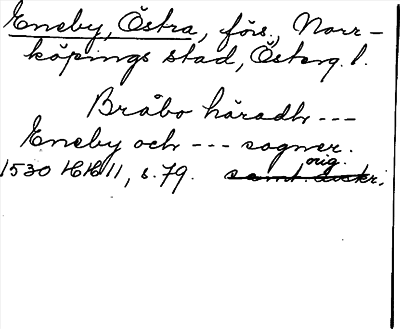 Eneby, Östra, förs., Norr-
köpings stad, Österg. l.
Bråbo häradh ---
Eneby och --- sogner.
1530 HH 11, s. 79. orig. samt. avskr.